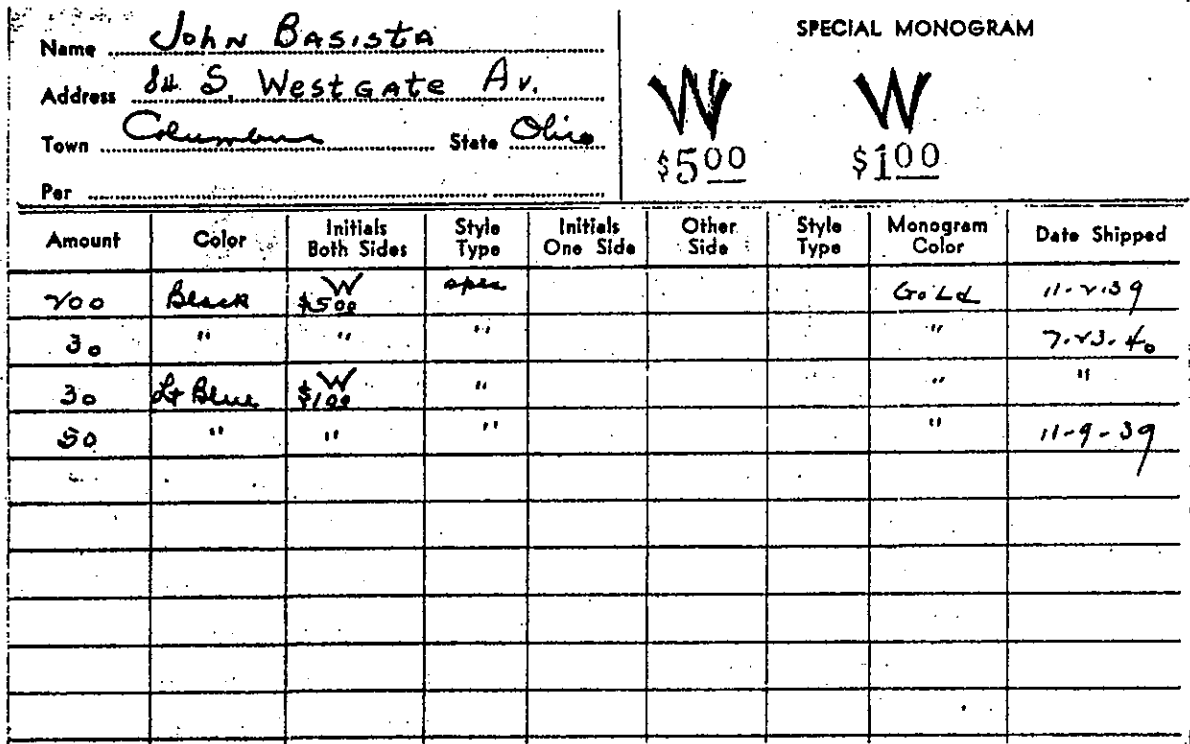 SPECIAL MONOGRAM
Name John Basista
Address 84 S. Westgate Av.
Town Columbus State Ohio
Per
W W
$5 00 $1 00
Amount Color Initials Both Sides Style Type Initials One Side Other Side Style Type Monogram Color Date Shipped
200 Black W $5 00 spec Gold 11-2-39
30 " " " " 7-23-40
30 Lt Blue W $1 00 " " "
50 " " " " 11-9-39